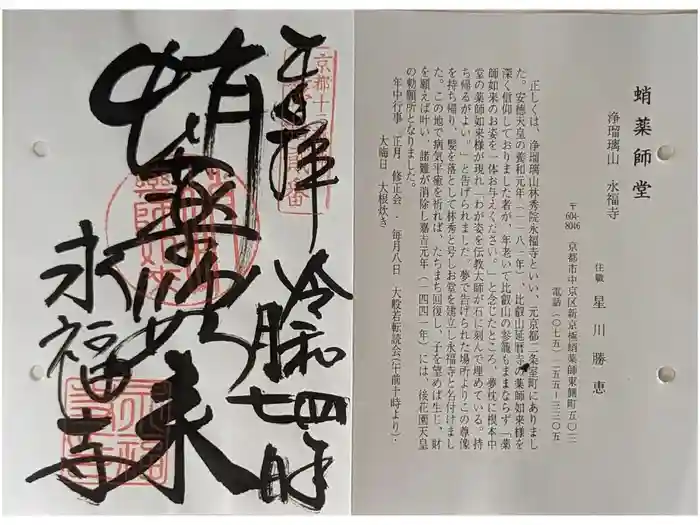 奉拝
令和四年
七月
蛸薬師如来
永福寺
蛸薬師堂
浄瑠璃山 永福寺
住職 星川勝恵
〒604-8046 京都市中京区新京極蛸薬師東側町五〇三
電話(〇七五)二五五-三三〇五
正しくは、浄瑠璃山林秀院永福寺といい、元京都二条室町にありまし
た。安徳天皇の養和元年(一一八一年)、比叡山延暦寺の薬師如来様を
深く信仰しておりました者が、年老いて比叡山の参籠もままならず「薬
師如来のお姿を一体お与えください。」と念じたところ、夢枕に根本中
堂の薬師如来様が現れ「わが姿を伝教大師が石に刻んで埋めている。持
ち帰るがよい。」と告げられました。夢で告げられた場所よりこの尊像
を持ち帰り、髪を落として林秀と号しお堂を建立し永福寺と名付けまし
た。この地で病気平癒を祈れば、たちまち回復し、子を望めば生じ、財
を願えば叶い、諸難が消除し嘉吉元年(一四四一年)には、後花園天皇
の勅願所となりました。
年中行事 正月 修正会・毎月八日 大般若転読会(午前十時より)・
大晦日 大根炊き